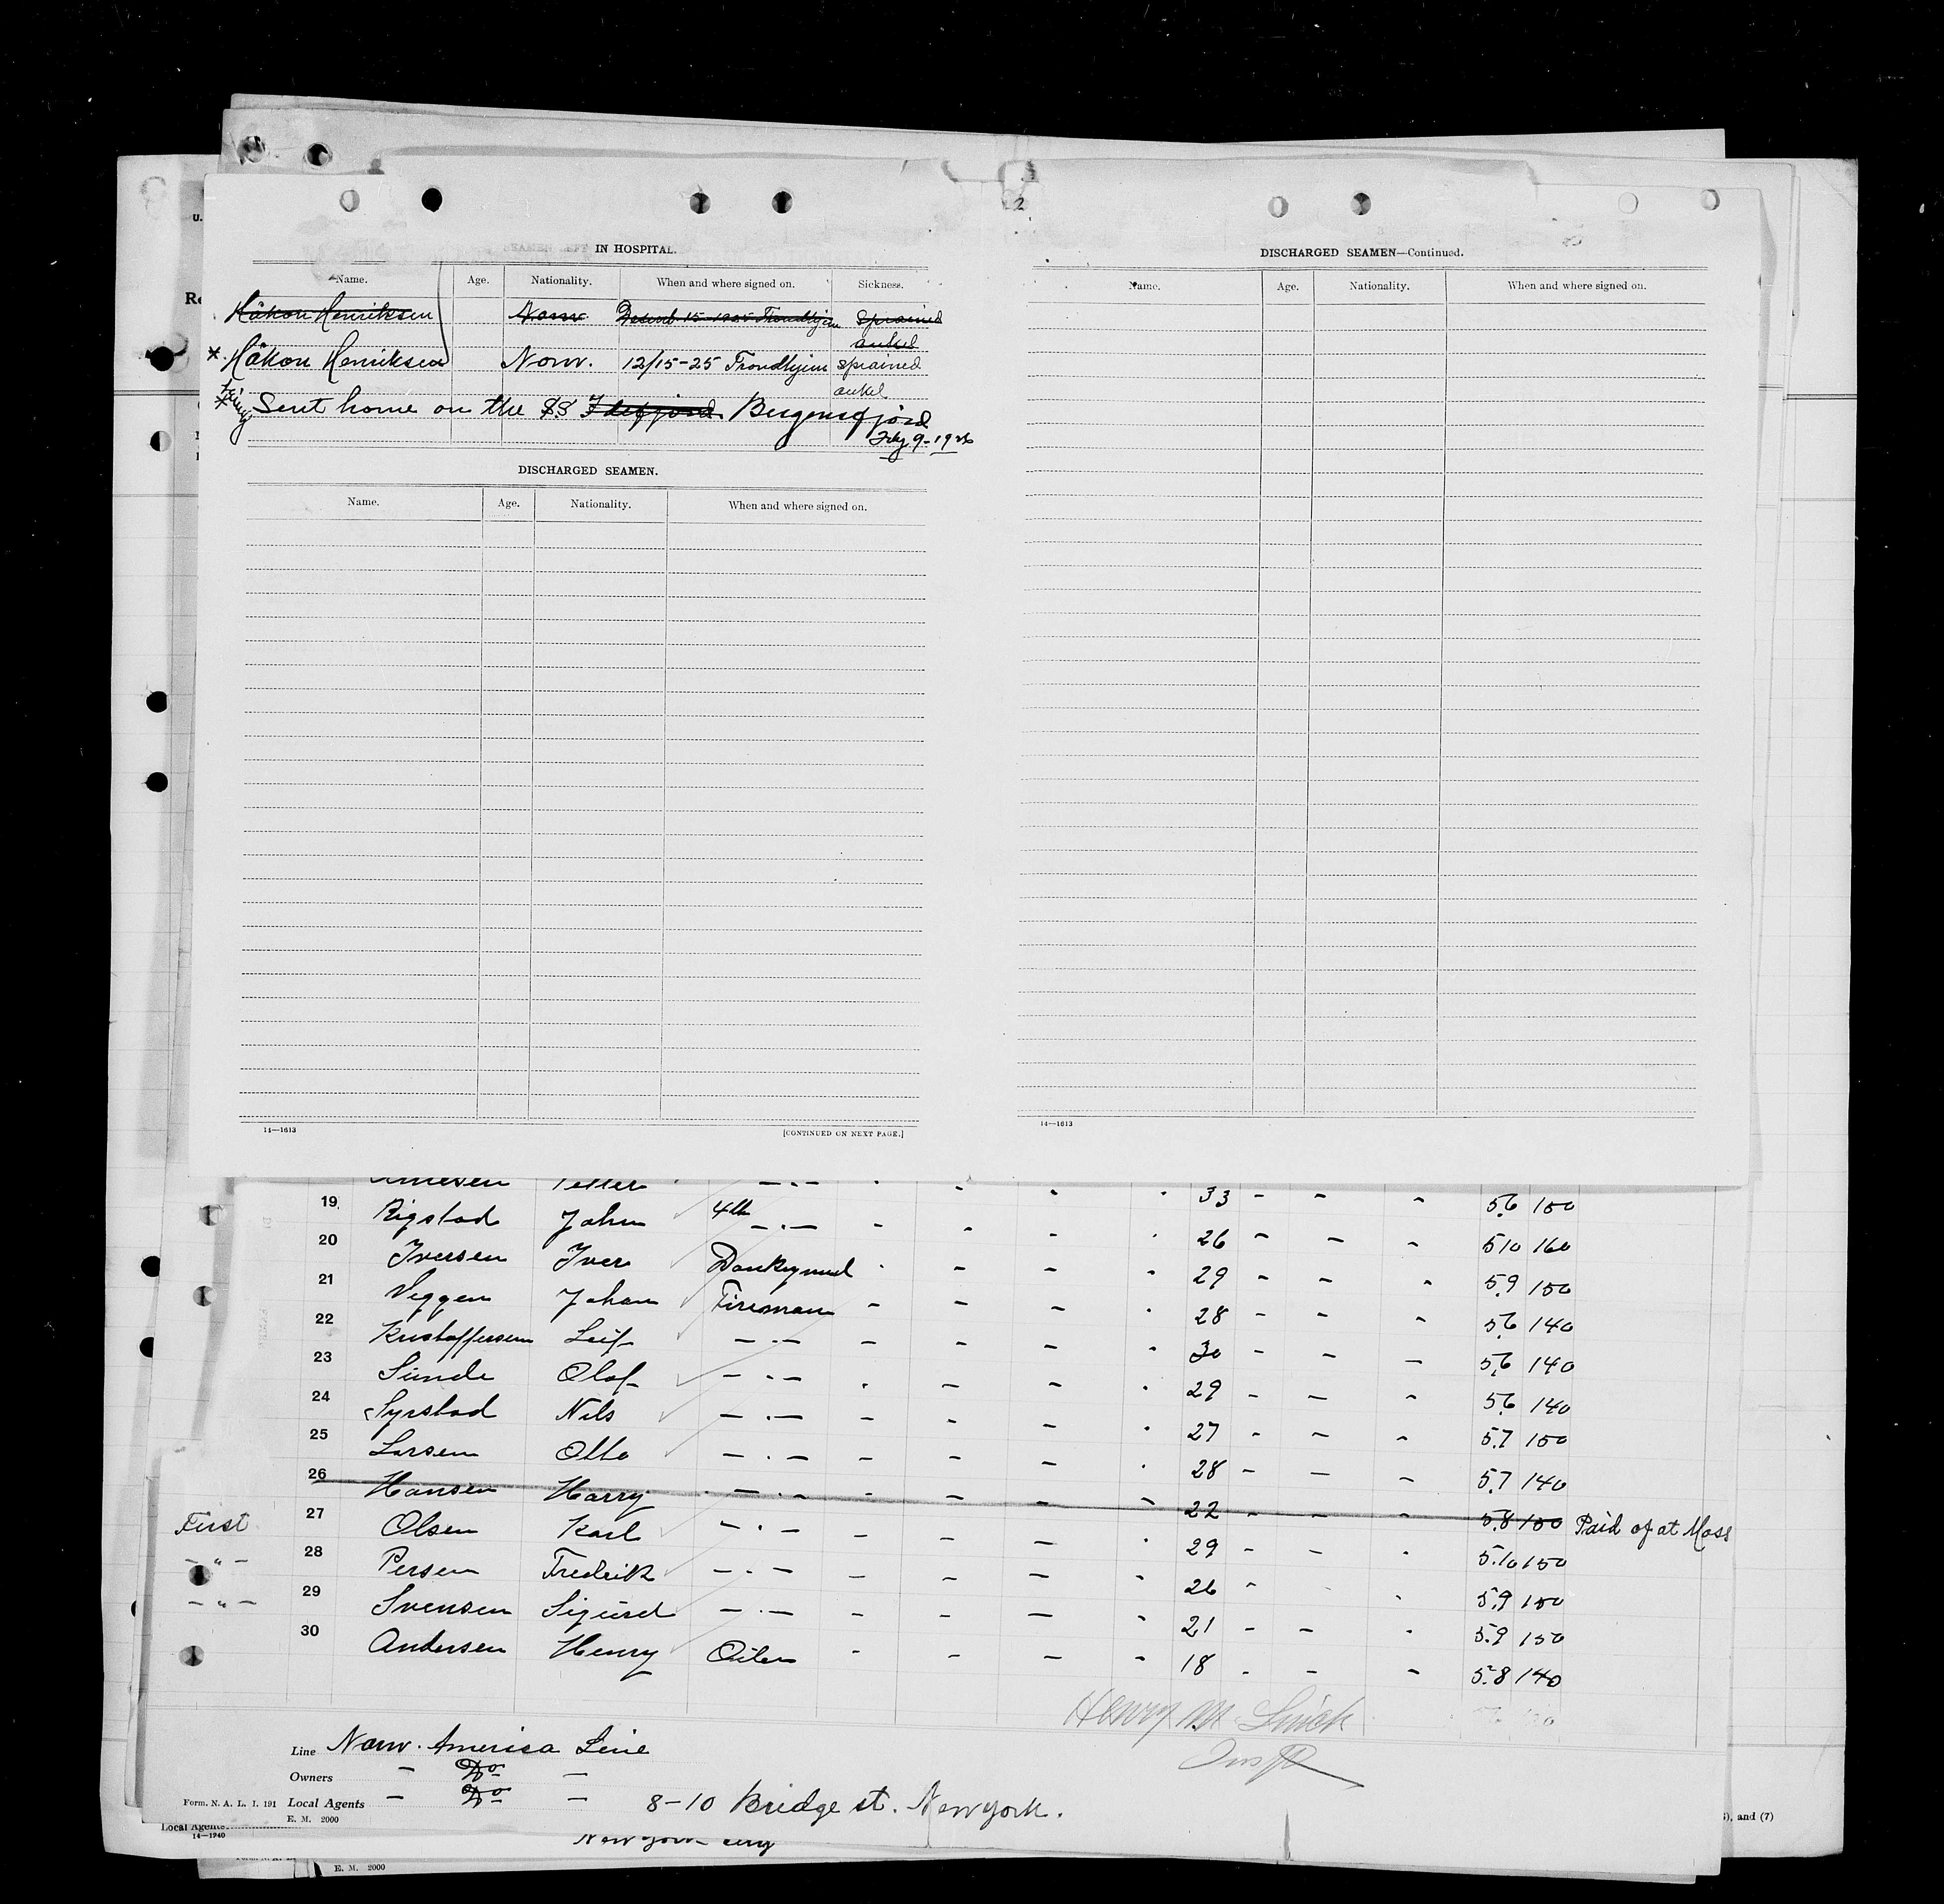 2
IN HOSPITAL.
Name. Age. Nationality. When and where signed on. Sickness.
Håkon Henriksen Norw. Decemb 15-1925 Trondhjem Sprained
ankel
* Håkon Henriksen Norw. 12/15-25 Trondhjem sprained
ankel
* Sent home on the SS Idefjord Bergensfjord
Feby 9-1926
DISCHARGED SEAMEN.
Name. Age. Nationality. When and where signed on.
14—1613 [CONTINUED ON NEXT PAGE.]
DISCHARGED SEAMEN—Continued.
Name. Age. Nationality. When and where signed on.
14—1613
Petter - - - 33 - - - 5.6 150
19 Rigstad Johan 4th - - - 26 - - - 5.10 160
20 Iversen Iver Donkeyman - - - 29 - - - 5.9 150
21 Veggen Johan Fireman - - - 28 - - - 5.6 140
22 Kristoffersen Leif - - - 30 - - - 5.6 140
23 Sunde Olaf - - - 29 - - - 5.6 140
24 Syrstad Nils - - - 27 - - - 5.7 150
25 Larsen Otto - - - 28 - - - 5.7 140
26 Hansen Harry - - - 22 - - - 5.8 150 Paid of at Moss
First 27 Olsen Karl - - - 29 - - - 5.10 150
- " - 28 Persen Fredrik - - - 26 - - 5.9 150
- " - 29 Svensen Sigurd - - - 21 - - - 5.9 150
30 Andersen Henry Oiler - - - 18 - - - 5.8 140
Henry M. Linck
Insp
Line Norw. America Line
Owners - Do -
Form. N. A. L. I. 191 Local Agents - Do - 8-10 Bridge st. New york.
E. M. 2000
), and (7)
Local Agents
14—1940
New York City
E. M. 2000